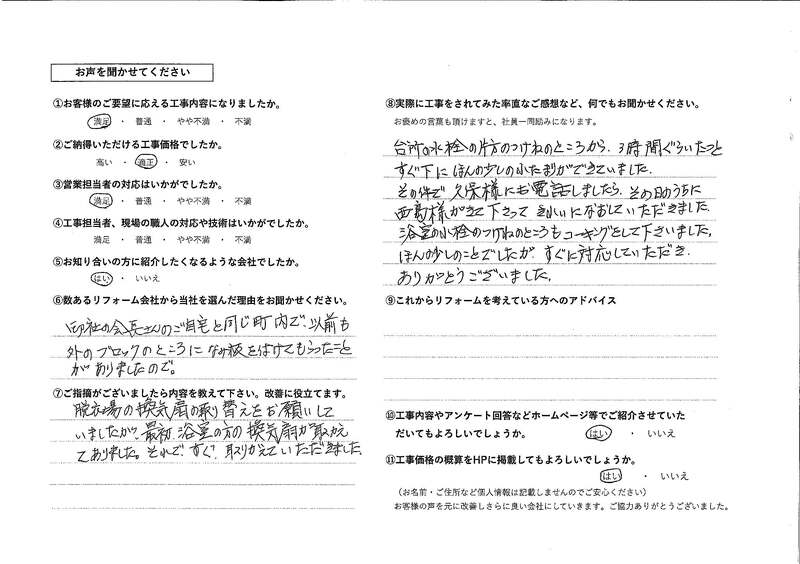 お声を聞かせてください
①お客様のご要望に応える工事内容になりましたか。
満足 ・ 普通 ・ やや不満 ・ 不満
②ご納得いただける工事価格でしたか。
高い ・ 適正 ・ 安い
③営業担当者の対応はいかがでしたか。
満足 ・ 普通 ・ やや不満 ・ 不満
④工事担当者、現場の職人の対応や技術はいかがでしたか。
満足 ・ 普通 ・ やや不満 ・ 不満
⑤お知り合いの方に紹介したくなるような会社でしたか。
はい ・ いいえ
⑥数あるリフォーム会社から当社を選んだ理由をお聞かせください。
御社の会長さんのご自宅と同じ町内で、以前も
外のブロックのところに なみ板をはけてもらったこと
がありましたので。
⑦ご指摘がございましたら内容を教えて下さい。改善に役立てます。
脱衣場の換気扇の取り替えをお願いして
いましたが、最初、浴室の方の換気扇が取りかえ
てありました。それで すぐ、取りかえていただきました。
⑧実際に工事をされてみた率直なご感想など、何でもお聞かせください。
お褒めの言葉も頂けますと、社員一同励みになります。
台所の水栓の片方のつけねのところから、2時間ぐらいたつと
すぐ下に ほんの少しの水たまりができていました。
その件で 久保様にお電話しましたら、その日のうちに
西島様がきて下さって きれいになおしていただきました。
浴室の水栓のつけねのところもコーキングをして下さいました。
ほんの少しのことでしたが すぐに対応していただき、
ありがとうございました。
⑨これからリフォームを考えている方へのアドバイス
⑩工事内容やアンケート回答などホームページ等でご紹介させていた
だいてもよろしいでしょうか。 はい ・ いいえ
⑪工事価格の概算をHPに掲載してもよろしいでしょうか。
はい ・ いいえ
（お名前・ご住所など個人情報は記載しませんのでご安心ください）
お客様の声を元に改善しさらに良い会社にしていきます。ご協力ありがとうございました。